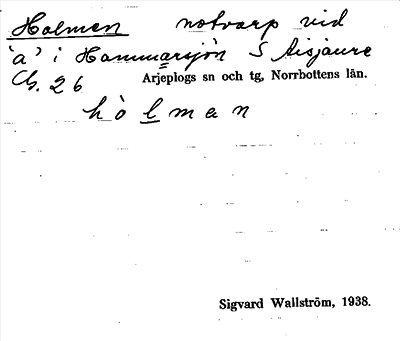 Holmen notvarp vid
'a' i Hammarsjön S Aisjaure
Arjeplogs sn och tg, Norrbottens län.
26
hòlman
Sigvard Wallström, 1938.